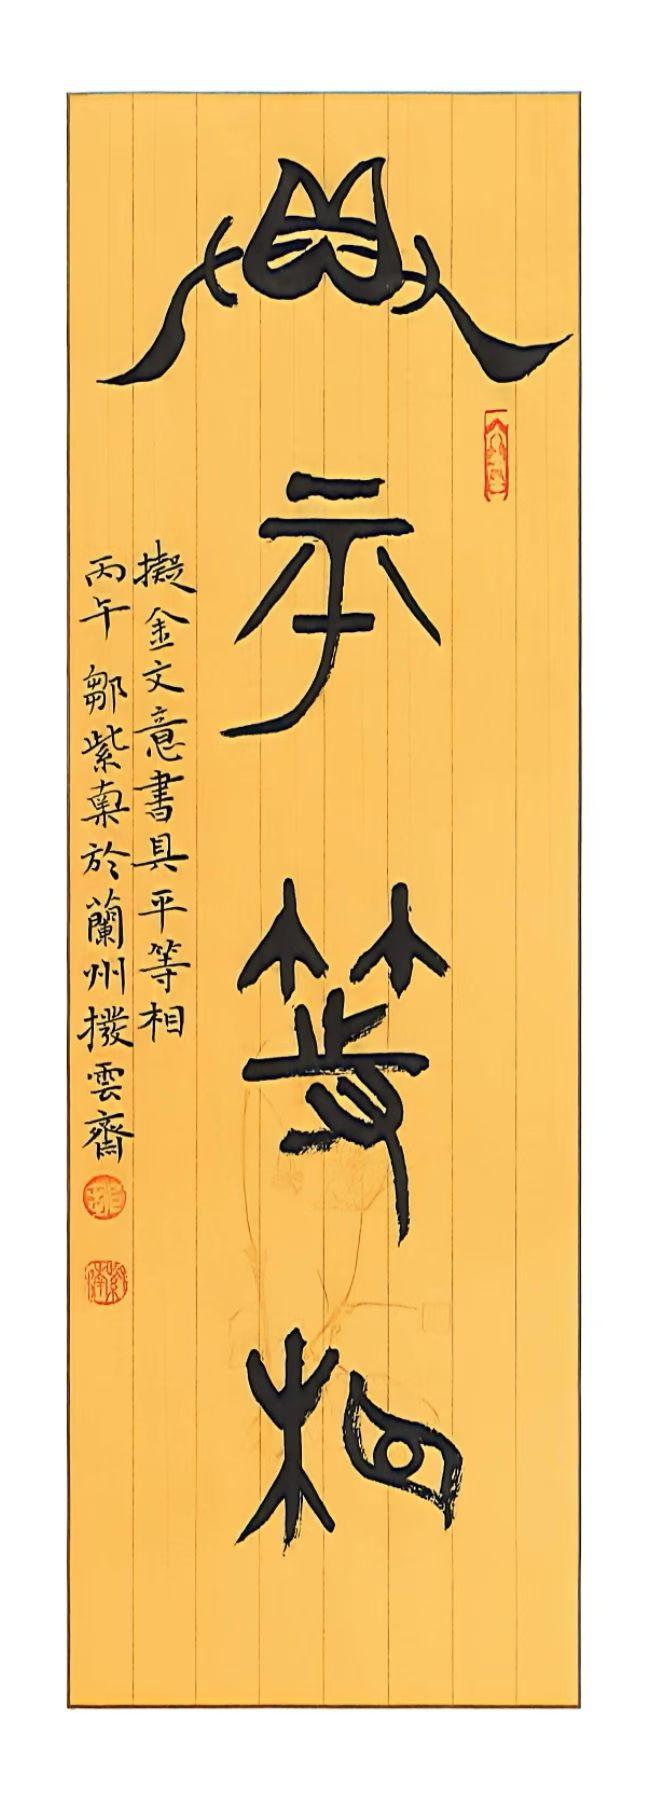 具平等相
擬金文意書具平等相
丙午鄒紫東於蘭州撥雲齋